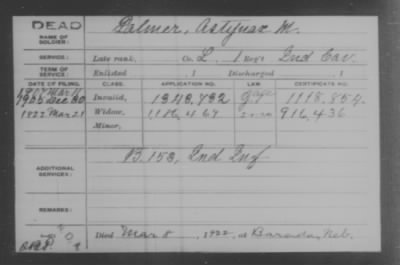 DEAD
NAME OF SOLDIER: Palmer, Astynax M.
SERVICE: Late rank, Co. L, 1 Reg't Ind Cav.
TERM OF SERVICE: Enlisted , 1 Discharged , 1
DATE OF FILING. CLASS. APPLICATION NO. LAW CERTIFICATE NO.
1905 Dec 30 Invalid, 1343,732 1118,854
1922 Mar 21 Widow, 1186,467 916,436
Minor,
ADDITIONAL SERVICES: B. 153, Ind Inf
REMARKS:
Died Mar 8, 1922, at Barada, Neb.